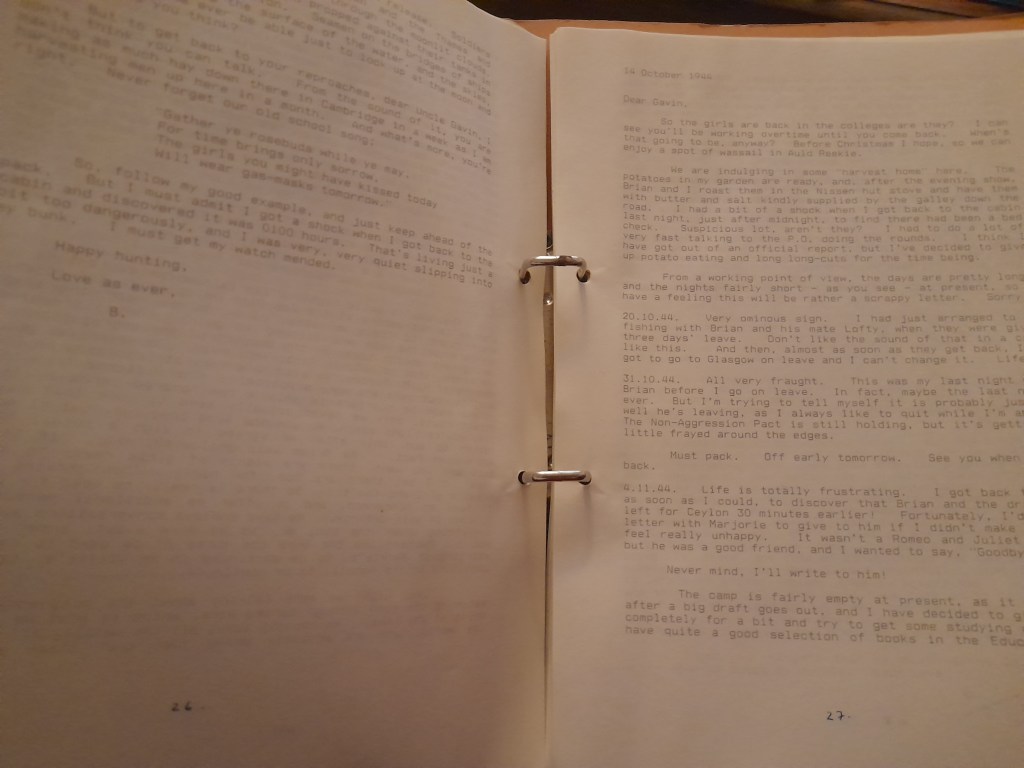 release.
through the
Soldiers
poised
ropes and
"moo!"
closely.
Seamen
against the
ladders
the surface of the water
the bridges of the
ever be able just to look up at the moon and
you think?
But to get back to your reproaches, dear Uncle Gavin, I
think you can talk. From the sound of it, you are
having as much hay down there in Cambridge in a week as we
rip-resting wen up here in a month. And what's more, you're
Never forget our old school song:
"Gather ye rosebuds while ye may,
For time brings only sorrow.
The girls you might have kissed today
Will wear gas-masks tomorrow."
So, follow my good example, and just keep ahead of the
pack. But I must admit I got a shock when I got back to the
cabin and discovered it was 0100 hours. That's living just a
bit too dangerously, and I was very, very quiet slipping into
my bunk. I must get my watch mended.
Happy hunting,
Love as ever,
B.
26.
14 October 194
Dear Gavin,
So the girls are back in the colleges are they? I can
see you'll be working overtime until you come back. When's
that going to be, anyway? Before Christmas I hope, so we can
enjoy a spot of wassail in Auld Reekie.
We are indulging in some 'harvest home' here. The
potatoes in my garden are ready, and, after the evening show
Brian and I roast them in the Nissen hut stove and have them
with butter and salt kindly supplied by the galley down the
road. I had a bit of a shock when I got back to the cabin
last night, just after midnight, to find there had been a bed
check. Suspicious lot, aren't they? I had to do a lot of
very fast talking to the P.O. doing the rounds. I think I
have got out of an official report, but I've decided to give
up potato-eating and long long-cuts for the time being.
From a working point of view, the days are pretty long
and the nights fairly short - as you see - at present, so
have a feeling this will be rather a scrappy letter. Sorry
20.10.44. Very ominous sign. I had just arranged to
fishing with Brian and his mate Lofty, when they were
three days' leave. Don't like the sound of that in a
like this. And then, almost as soon as they get back, I
got to go to Glasgow on leave and I can't change it. Life
31.10.44. All very fraught. This was my last night
Brian before I go on leave. In fact, maybe the last
ever. But I'm trying to tell myself it is probably just
well he's leaving, as I always like to quit while I'm
The Non-Aggression Pact is still holding, but it's
little frayed around the edges.
Must pack. Off early tomorrow. See you when
back.
4.11.44. Life is totally frustrating. I got back
as soon as I could, to discover that Brian and the
left for Ceylon 30 minutes earlier! Fortunately, I'd
letter with Marjorie to give to him if I didn't make
feel really unhappy. It wasn't a Romeo and Juliet
but he was a good friend, and I wanted to say, "Goodby
Never mind, I'll write to him!
The camp is fairly empty at present, as it
after a big draft goes out, and I have decided to
completely for a bit and try to get some studying
have quite a good selection of books in the
27.